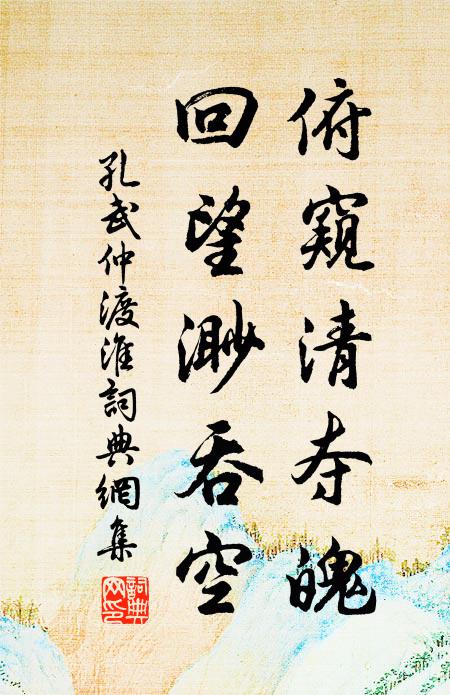 俯窺清夺魄
回望渺吞空
孔武仲渡淮詞典網集
詞典网印